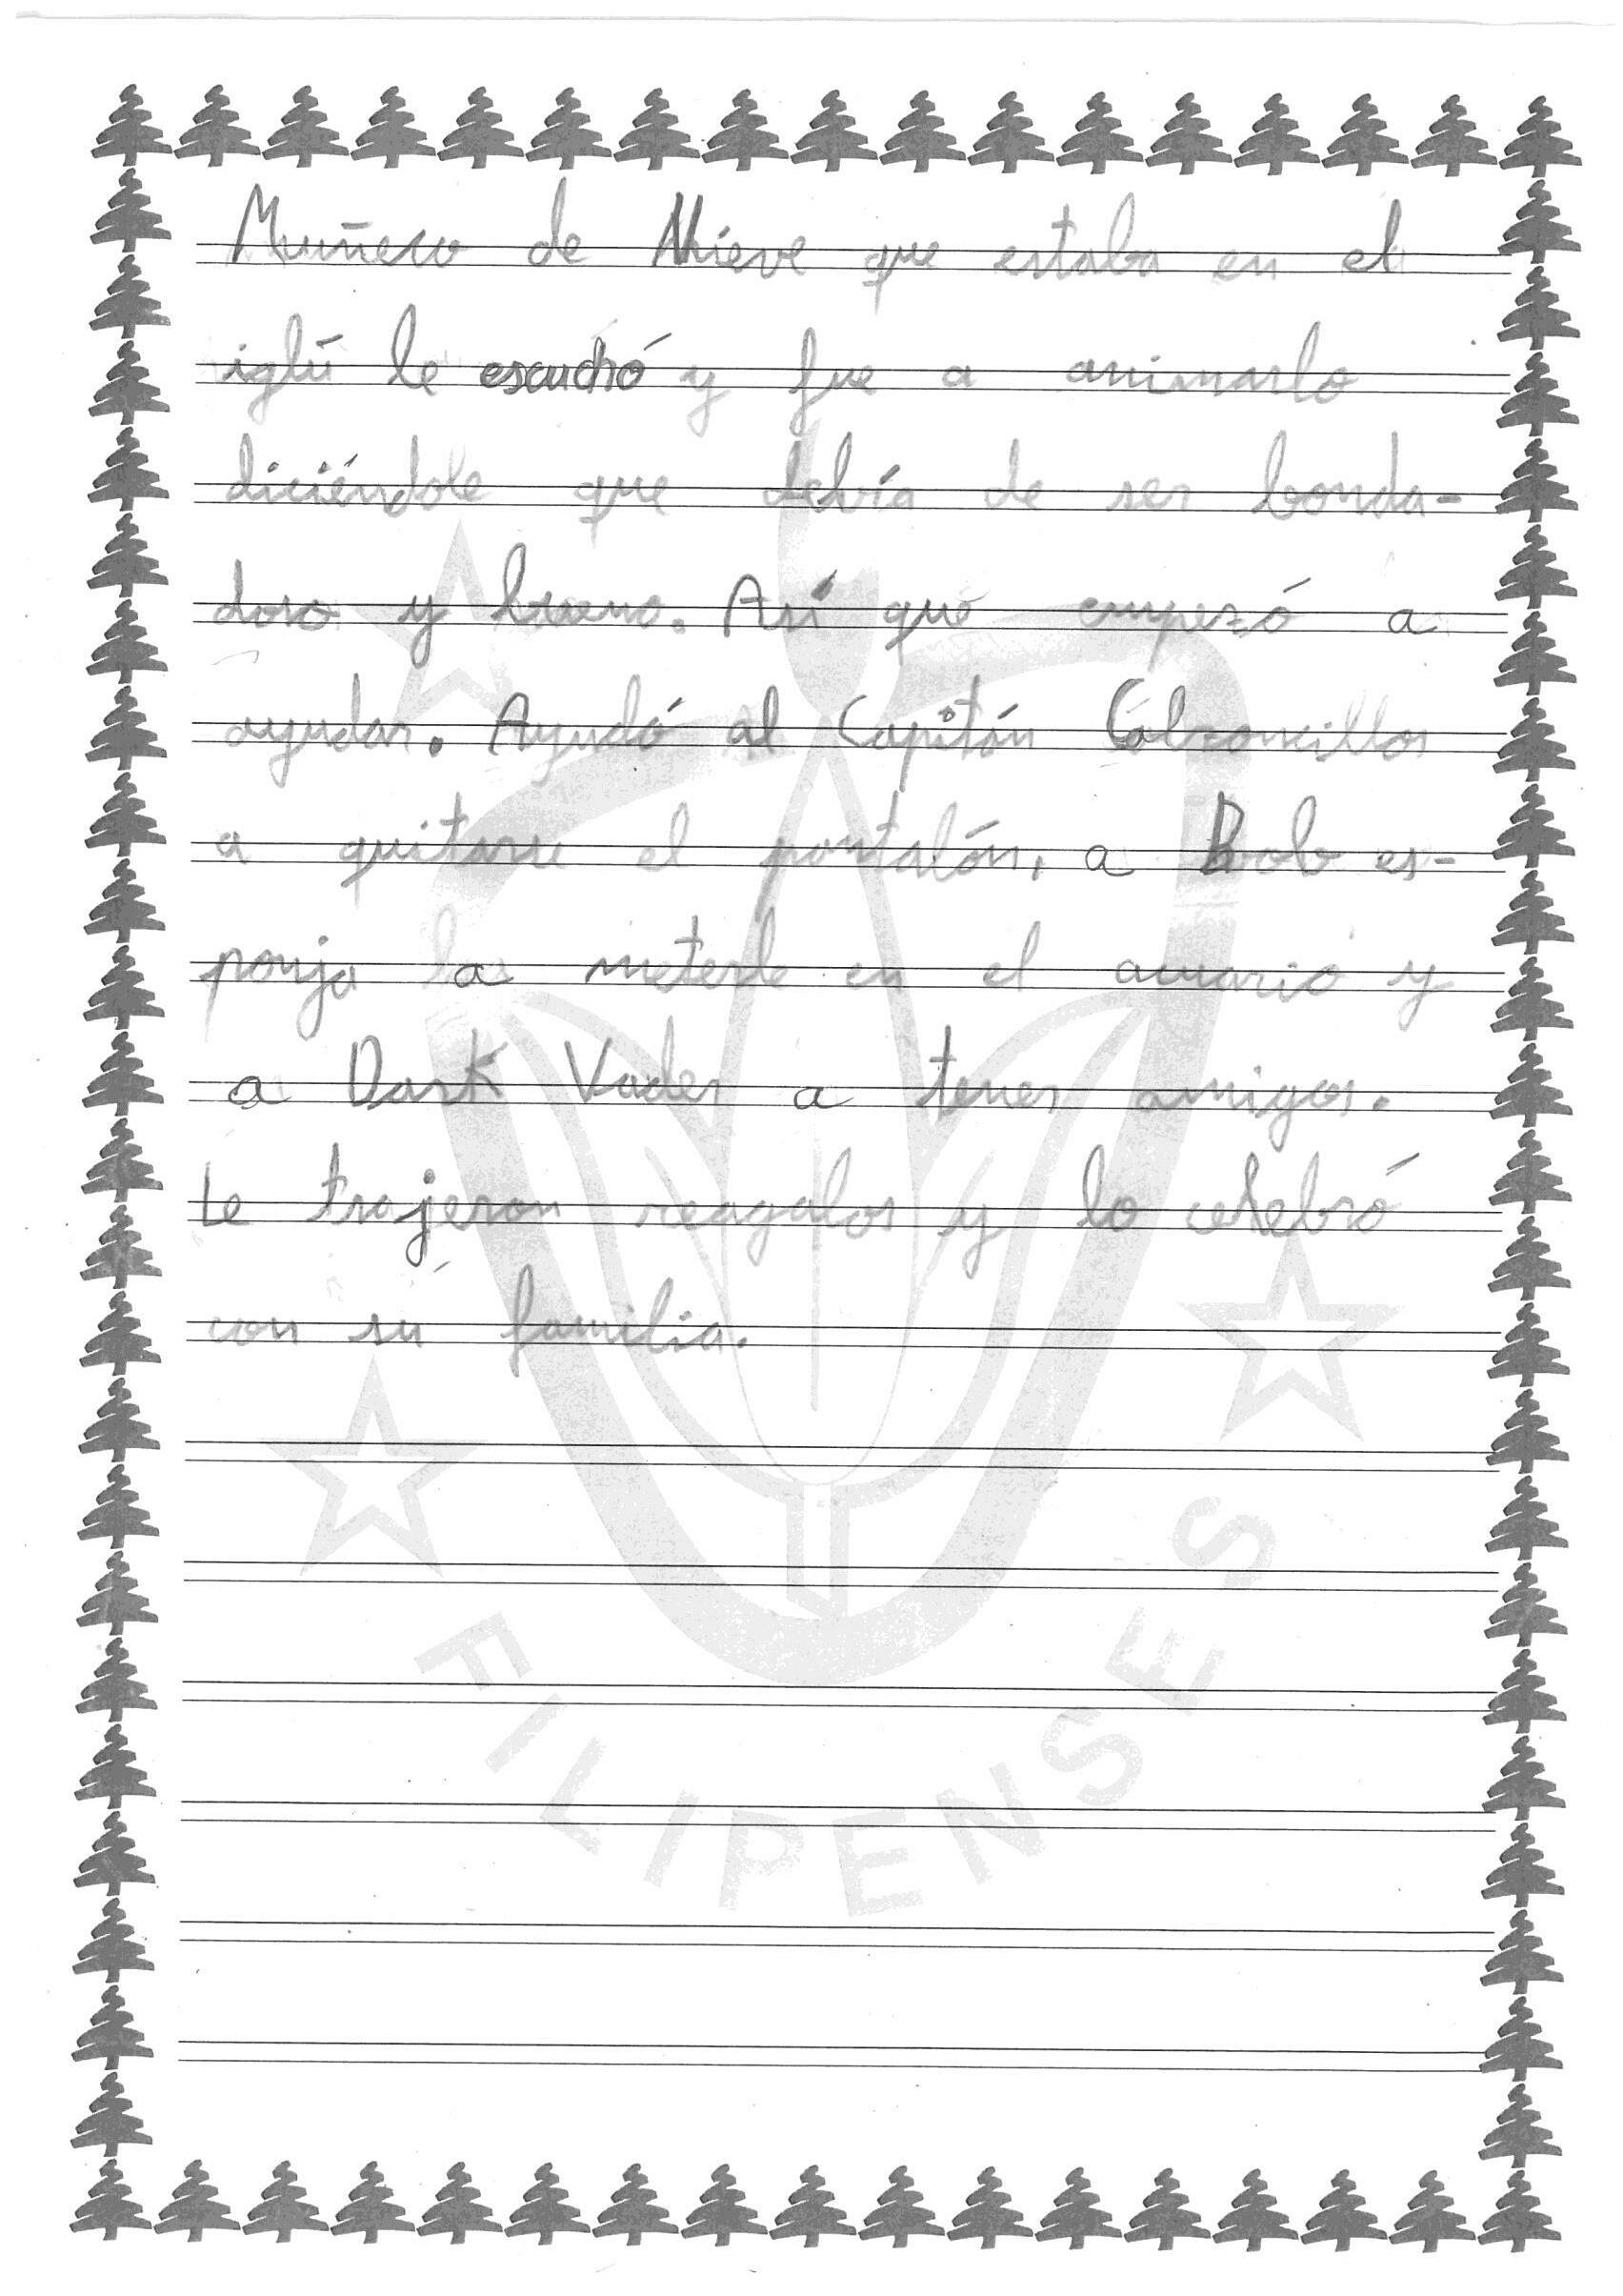 Muñeco de Nieve que estaba en el
iglú le escuchó y fue a animarlo
diciéndole que debía de ser bonda-
doso y bueno. Así que empezó a
ayudar. Ayudó al Capitán Calzoncillos
a quitarse el pantalón, a Bob es-
ponja a meterle en el acuario y
a Dark Vader a tener amigos.
Le trajeron reagalos y lo celebró
con su familia.
FILIPENSES